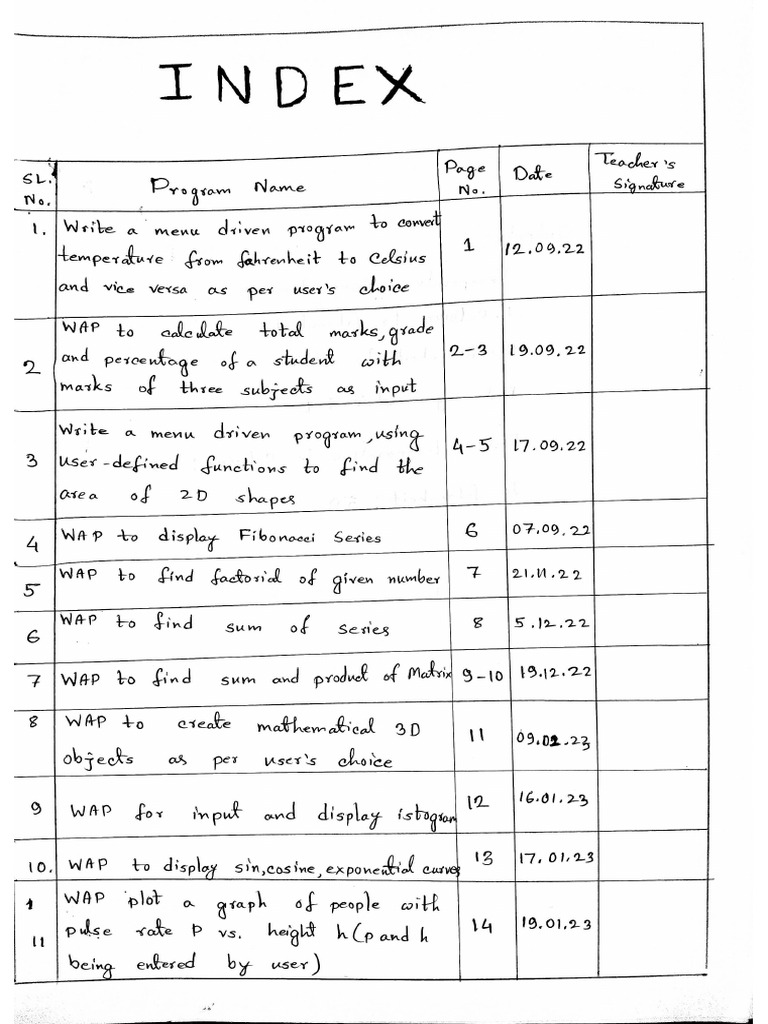 INDEX
SL. No. Program Name Page No. Date Teacher's Signature
1. Write a menu driven program to convert
temperature from fahrenheit to Celsius 1 12.09.22
and vice versa as per user's choice
WAP to calculate total marks, grade
2 and percentage of a student with 2-3 19.09.22
marks of three subjects as input
Write a menu driven program, using
3 user-defined functions to find the 4-5 17.09.22
area of 2D shapes
4 WAP to display Fibonacci Series 6 07.09.22
5 WAP to find factorial of given number 7 21.11.22
6 WAP to find sum of series 8 5.12.22
7 WAP to find sum and product of Matrix 9-10 19.12.22
8 WAP to create mathematical 3D
objects as per user's choice 11 09.02.23
9 WAP for input and display istogram 12 16.01.23
10. WAP to display sin, cosine, exponential curves 13 17.01.23
WAP plot a graph of people with
11 pulse rate p vs. height h (p and h 14 19.01.23
being entered by user)